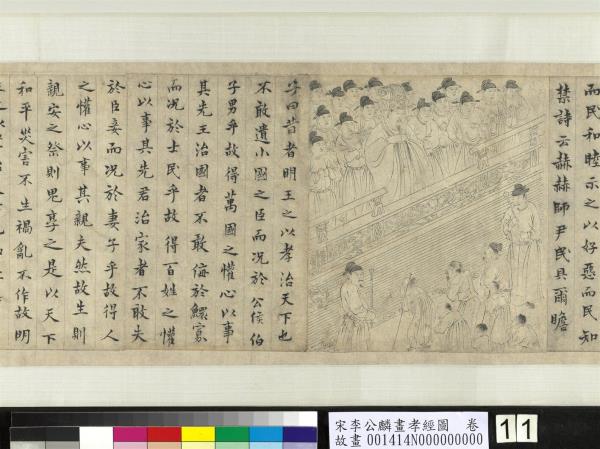 而民和睦示之以好惡而民知
禁詩云赫赫師尹民具爾瞻
子曰昔者明王之以孝治天下也
不敢遺小國之臣而況於公侯伯
子男乎故得萬國之懽心以事
其先王治國者不敢侮於鰥寡
而況於士民乎故得百姓之懽
心以事其先君治家者不敢失
於臣妾而況於妻子乎故得人
之懽心以事其親夫然故生則
親安之祭則鬼享之是以天下
和平災害不生禍亂不作故明
宋李公麟畫孝經圖 卷
故畫 001414N000000000
11